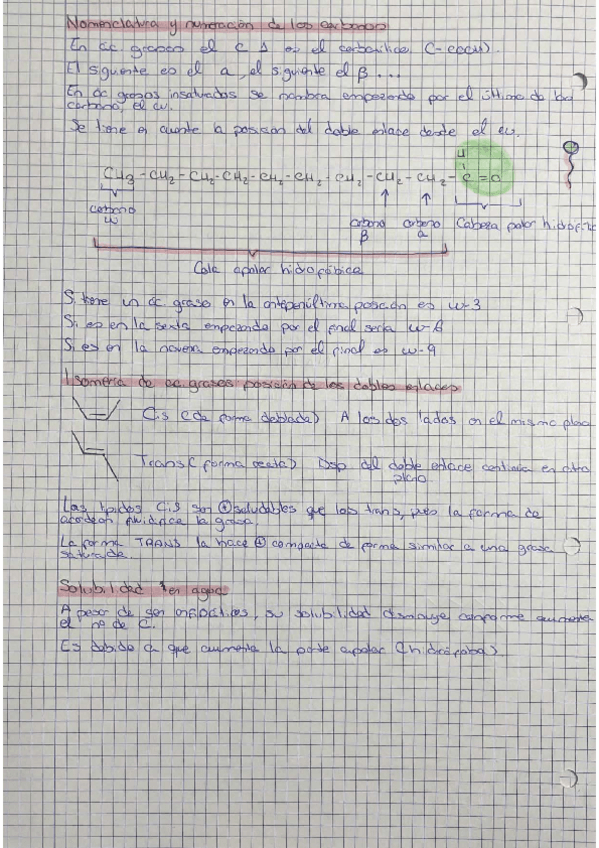 Nomenclatura y numeración de los carbonos
En ác. grasos el C 1 es el carboxílico (-COOH).
El siguiente es el α, el siguiente el β...
En ác grasos insaturados se nombra empezando por el último de los
carbonos, el ω.
Se tiene en cuenta la posición del doble enlace desde el ω.
H
CH3 - CH2 - CH2 - CH2 - CH2 - CH2 - CH2 - CH2 - CH2 - C = O
carbono ω
carbono β
carbono α
Cabeza polar hidrofí
Cola apolar hidrofóbica
Si tiene un ác. graso en la antepenúltima posición es ω-3
Si es en la sexta empezando por el final sería ω-6
Si es en la novena empezando por el final es ω-9
Isomería de ac. grasos posición de los dobles enlaces
Cis (de forma doblada) A los dos lados en el mismo plano
Trans (forma recta) Dsp del doble enlace continúa en otro
plano
Los lípidos Cis son ⊕ saludables que los trans, pues la forma de
acordeón fluidifica la grasa.
La forma TRANS la hace ⊕ compacta de forma similar a una grasa
saturada.
Solubilidad en agua
A pesar de ser anfipáticos, su solubilidad disminuye conforme aumenta
el nº de C.
Es debido a que aumenta la parte apolar (hidrófoba).